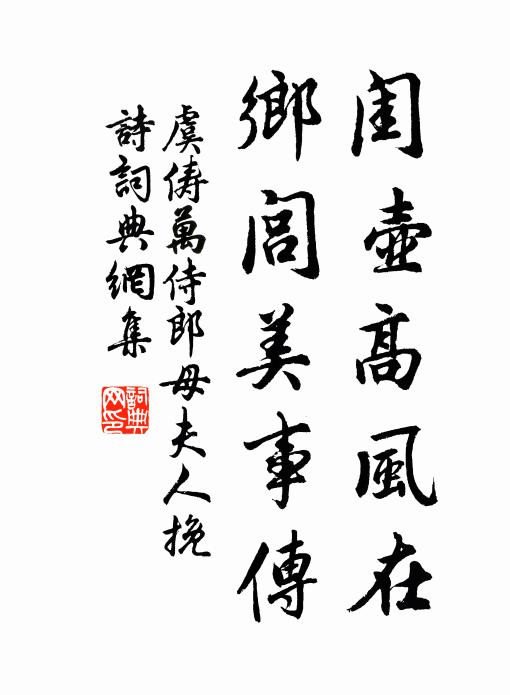 闺壶高風在
鄉闾美事傳
虞儔萬侍郎母夫人挽
詩詞典網集
詞典
网印